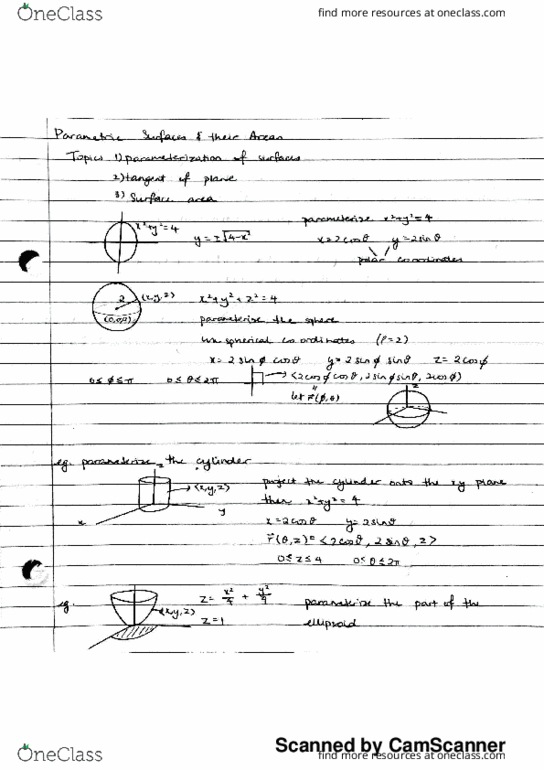 OneClass
find more resources at oneclass.com
Parametric Surfaces & their Areas
Topics 1) parameterization of surfaces
2) tangent of plane
3) Surface area
x²+y²=4
parameterize x²+y²=4
y=±√4-x²
x=2cosθ y=2sinθ
polar coordinates
2 (x,y,z)
(0,0,0)
x²+y²+z²=4
parameterize the sphere
use spherical coordinates (ρ=2)
x=2sinφ cosθ y=2sinφ sinθ z=2cosφ
0≤φ≤π 0≤θ≤2π
<2cosφcosθ, 2sinφsinθ, 2cosφ>
let r(φ,θ)
z
eg. parameterize the cylinder
z
(x,y,z)
x
y
project the cylinder onto the xy plane
then x²+y²=4
x=2cosθ y=2sinθ
r(θ,z)=<2cosθ, 2sinθ, z>
0≤z≤4 0≤θ≤2π
eg.
(x,y,z)
z=x²/4 + y²/9
z=1
parameterize the part of the
ellipsoid
Scanned by CamScanner
OneClass
find more resources at oneclass.com